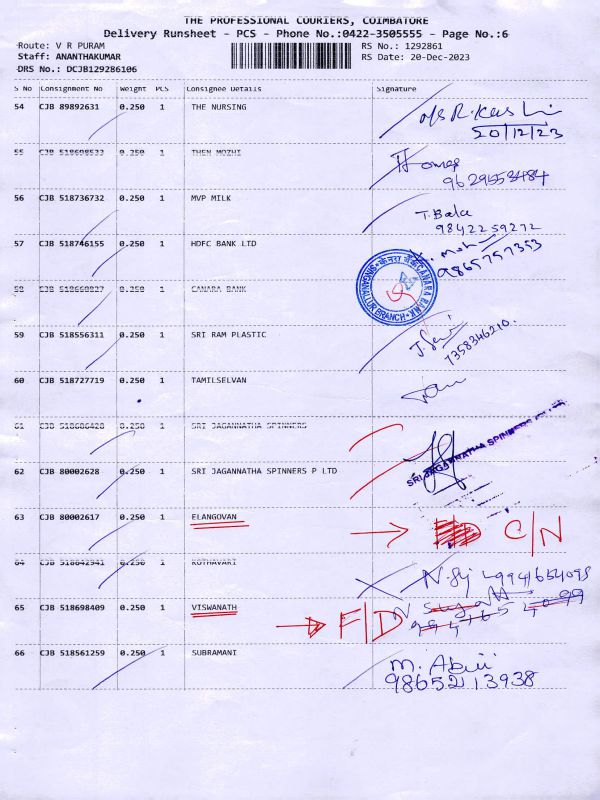 THE PROFESSIONAL COURIERS, COIMBATORE
Delivery Runsheet - PCS - Phone No.:0422-3505555 - Page No.:6
Route: V R PURAM RS No.: 1292861
Staff: ANANTHAKUMAR RS Date: 20-Dec-2023
DRS No.: DCJB129286106
S No Consignment No Weight PCS Consignee Details Signature
54 CJB 89892631 0.250 1 THE NURSING
20/12/23
55 CJB 518698533 0.250 1 THEN MOZHI
9629553484
56 CJB 518736732 0.250 1 MVP MILK T. Bala
9842259272
57 CJB 518746155 0.250 1 HDFC BANK LTD
9865757353
58 CJB 518668837 0.250 1 CANARA BANK
CANARA BANK
SINGANALLUR BRANCH
59 CJB 518556311 0.250 1 SRI RAM PLASTIC
7358346210.
60 CJB 518727719 0.250 1 TAMILSELVAN
61 CJB 518686428 0.250 1 SRI JAGANNATHA SPINNERS
SRI JAGANNATHA SPINNERS
62 CJB 80002628 0.250 1 SRI JAGANNATHA SPINNERS P LTD
63 CJB 80002617 0.250 1 ELANGOVAN C/N
64 CJB 518642941 0.250 1 KOTHAVARI
65 CJB 518698409 0.250 1 VISWANATH F/D
66 CJB 518561259 0.250 1 SUBRAMANI
9865213938